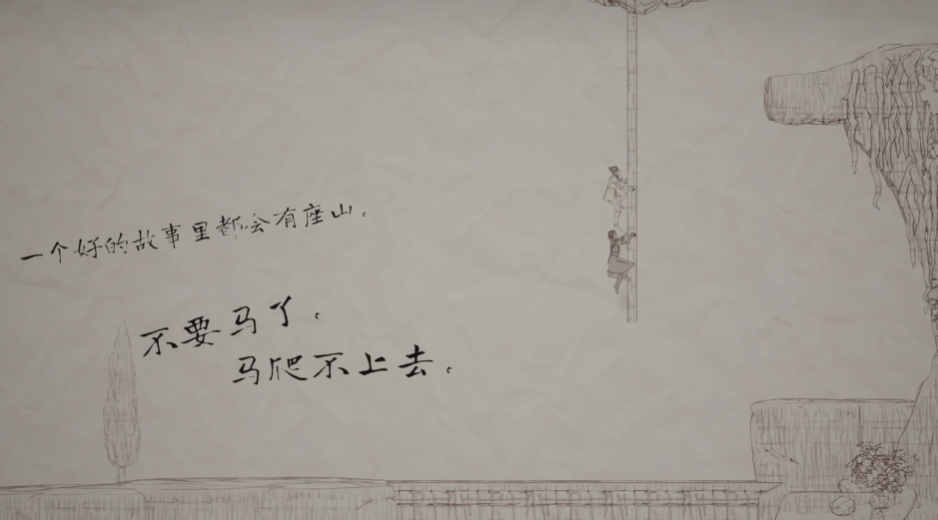 一个好的故事里都会有座山。
不要马了。
马爬不上去。